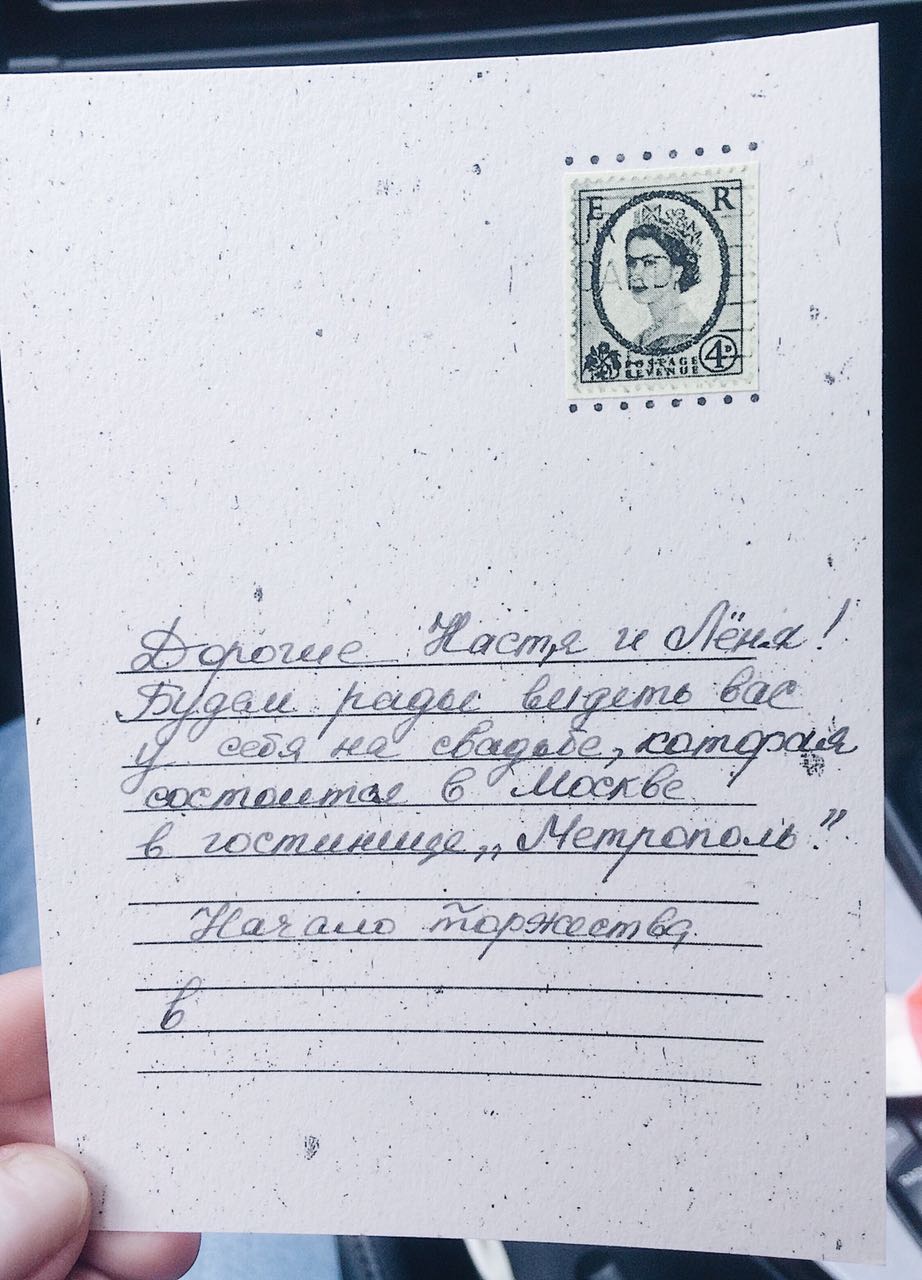 E R
POSTAGE
REVENUE
4D
Дорогие Настя и Лёня!
Будем рады видеть вас
у себя на свадьбе, которая
состоится в Москве
в гостинице „Метрополь”.
Начало торжества
в